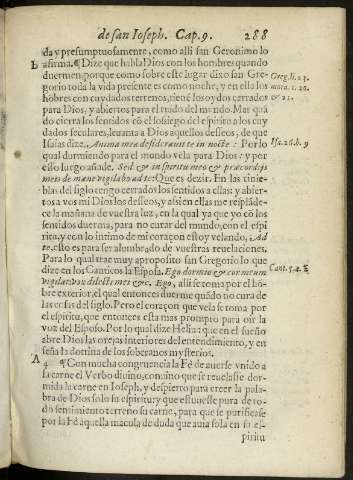 de san Ioseph. Cap. 9. 288
da y presumptuosamente, como alli san Geronimo lo
b afirma. ¶ Dize que habla Dios con los hombres quando
duermen, porque como sobre este lugar dixo san Gre-
Greg. li. 23.
gorio toda la vida presente es como noche, y en ella los
mora. c. 20.
hõbres con cuydados terrenos, tiené los oydos cerrados
& 21.
para Dios, y abiertos para el ruido del mũdo. Mas quã
do cierra los sentidos cõ el sosiego del espiritu a los cuy
dados seculares, leuanta a Dios aquellos desseos, de que
Isaias dize. Anima mea desiderauit te in nocte: Por lo
Isa. 26. b. 9
qual durmiendo para el mundo vela para Dios: y por
esso luego añade. Sed & in spiritu meo & præcordijs
meis de mane vigilabo ad te: Que es dezir. En las tinie-
blas del siglo tengo cerrados los sentidos a ellas: y abier-
tos a vos mi Dios los desseos, y assi en ellas me resplãde-
ce la mañana de vuestra luz, en la qual ya que yo cõ los
sentidos duerma, para no curar del mundo, con el espi
ritu, y con lo intimo de mi coraçon estoy velando, Ad
te, esto es para ser alumbrado de vuestras reuelaciones.
Para lo qual trae muy aproposito san Gregorio lo que
dize en los Canticos la Esposa. Ego dormio & cor meum
Cant. 5. a. 2
vigilat: vox dilecti mei &c. Ego, alli se toma por el hõ-
bre exterior, el qual entonces duerme quãdo no cura de
las cosas del siglo. Pero el coraçon que vela se toma por
el espiritu, que entonces esta mas prompto para oir la
voz del Esposo. Por lo qual dize Heliu: que en el sueño
abre Dios las orejas interiores del entendimiento, y en
seña la dotrina de los soberanos mysterios.
A
4 ¶ Con mucha congruencia la Fè de auerse vnido a
la carne el Verbo diuino, conuino que se reuelasse dor-
mida la carne en Ioseph, y despierto para creer la pala-
bra de Dios solo su espiritu: y que estuuesse pura de to-
do sentimiento terreno su carne, para que se purificase
por la Fè aquella macula de duda que auia solo en su es-
piritu